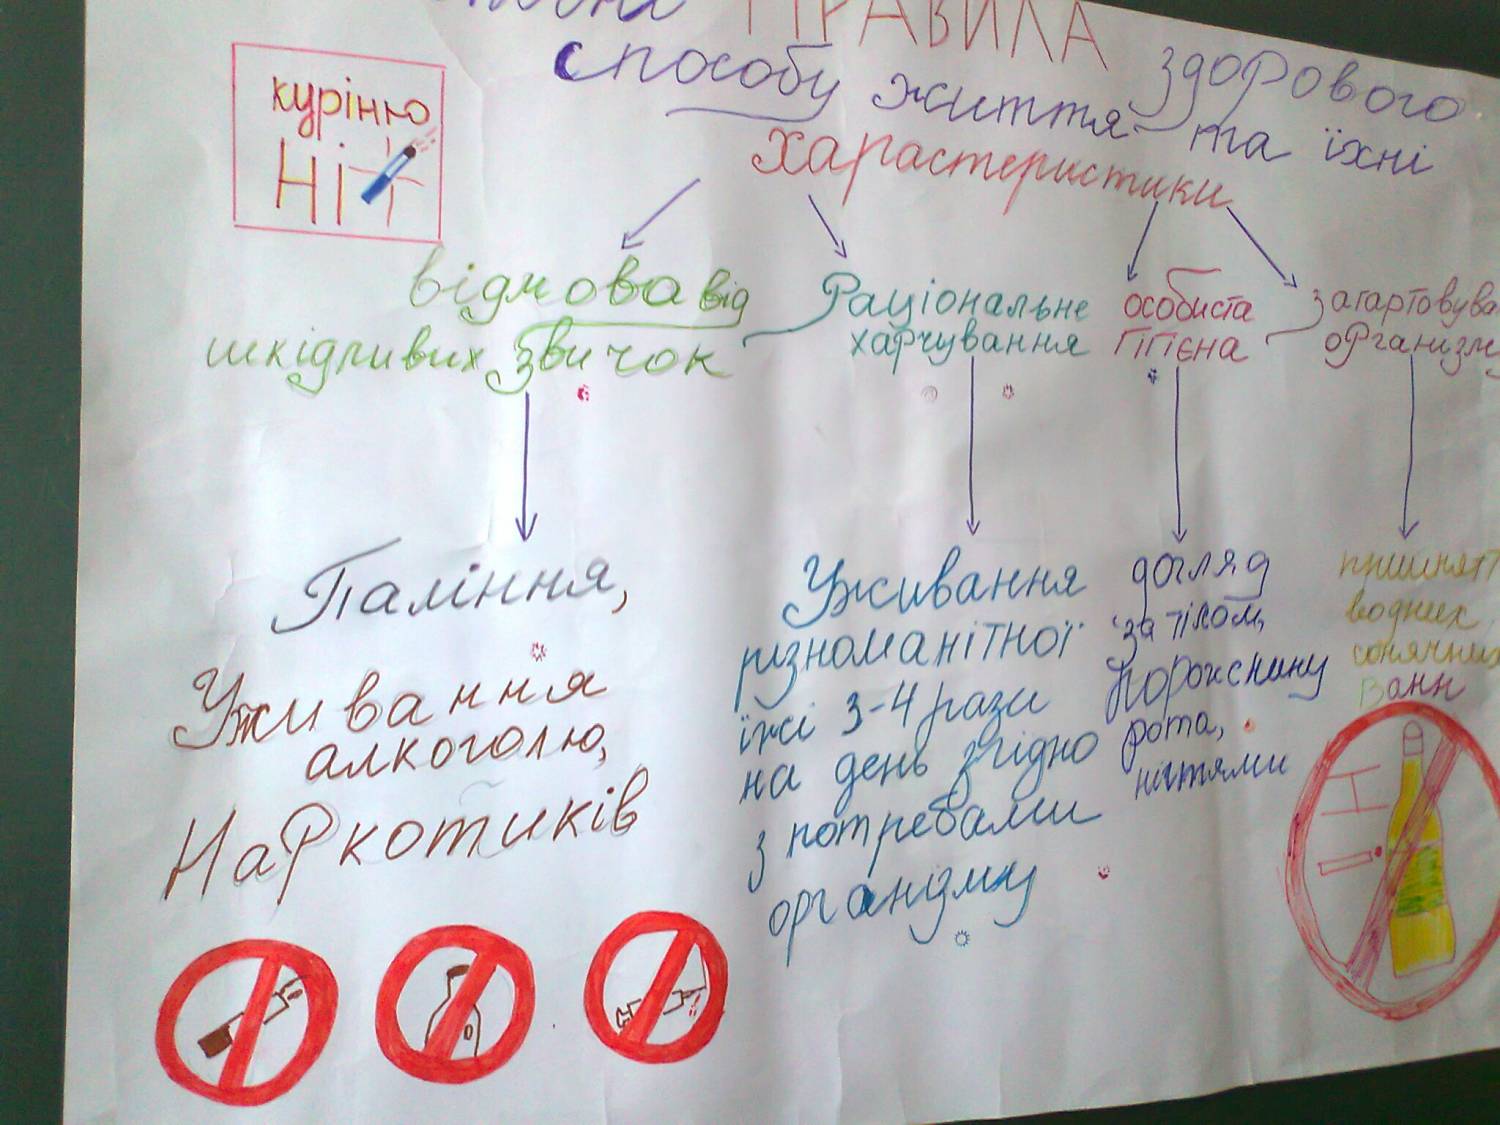 ПРАВИЛА
здорового
способу життя та їхні
характеристики
курінню
Ні
відмова від
шкідливих звичок
Раціональне
харчування
особиста
гігієна
загартовува
організму
Паління,
Уживання
алкоголю,
Наркотиків
Уживання
різноманітної
їжі 3-4 рази
на день згідно
з потребами
організму
догляд
за тілом,
порожнину
рота,
нігтями
прийнятт
водних,
сонячних
Ванн